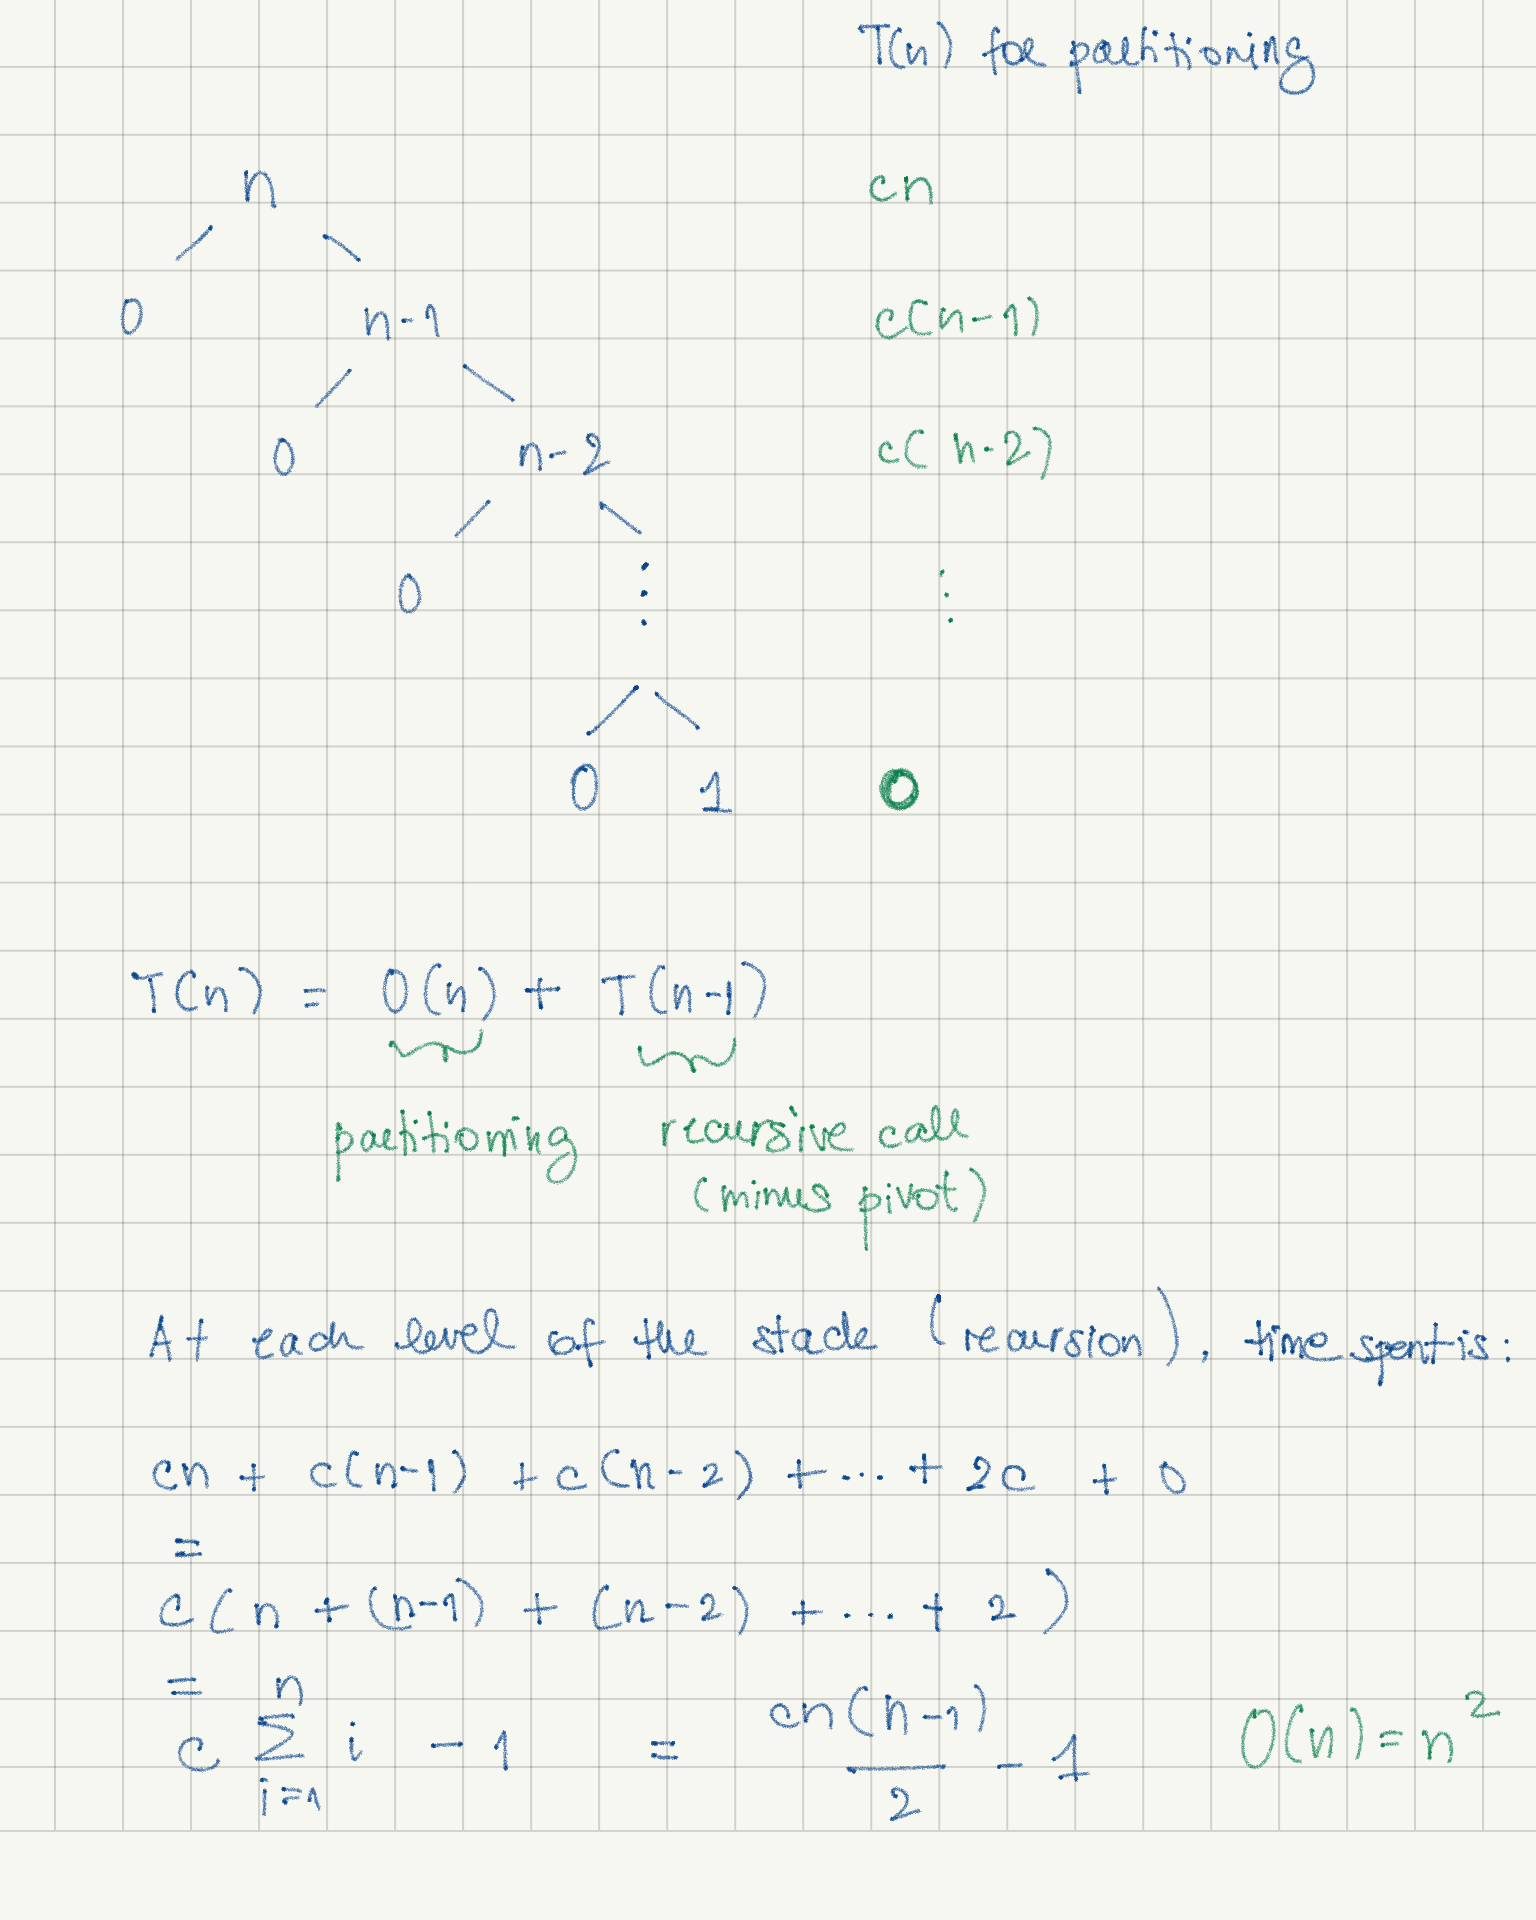 T(n) for partitioning
n cn
0 n-1 c(n-1)
0 n-2 c(n-2)
0 ⋮ ⋮
0 1 0
T(n) = O(n) + T(n-1)
partitioning recursive call
(minus pivot)
At each level of the stack (recursion), time spent is:
cn + c(n-1) + c(n-2) + ... + 2c + 0
=
c(n + (n-1) + (n-2) + ... + 2)
=
c ∑_{i=1}^{n} i - 1 = cn(n-1)/2 - 1 O(n) = n²